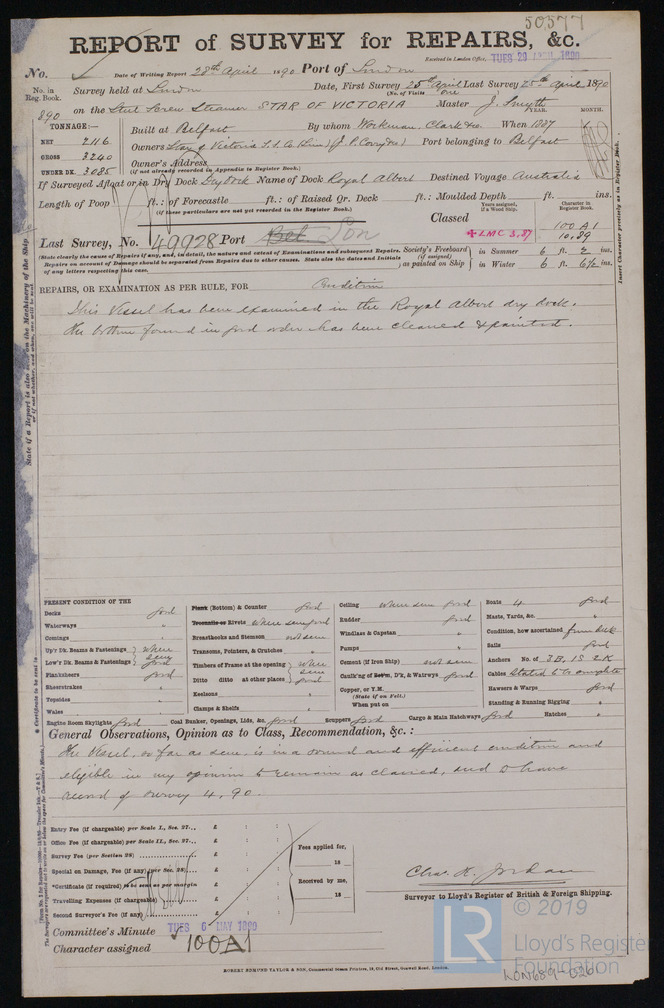 50577
REPORT of SURVEY for REPAIRS, &c.
Received in London Office, TUES 29 APRIL 1890
No. Date of Writing Report 28th April 1890 Port of London
No. in Reg. Book. Survey held at London Date, First Survey 25th April Last Survey 25th April 1890
(No. of Visits one
890 on the Steel Screw Steamer STAR OF VICTORIA Master J. Smyth
YEAR. MONTH.
TONNAGE:— Built at Belfast By whom Workman, Clark & Co. When 1887
NET 2116
GROSS 3240
UNDER DK. 3085
Owners Star of Victoria S.S. Co. Lim (J. P. Corry & Co) Port belonging to Belfast
Owner's Address
(if not already recorded in Appendix to Register Book.)
If Surveyed Afloat or in Dry Dock Drydock Name of Dock Royal Albert Destined Voyage Australia
Length of Poop ft.: of Forecastle ft.: of Raised Qr. Deck ft.: Moulded Depth ft. ins.
(if these particulars are not yet recorded in the Register Book.)
Years assigned, if a Wood Ship. Character in Register Book.
Classed 100 A1
+LMC 3,87 10,89
Last Survey, No. 49928 Port Bel Lon
(State clearly the cause of Repairs, if any, and, in detail, the nature and extent of Examinations and subsequent Repairs.
Repairs on account of Damage should be separated from Repairs due to other causes. State also the dates and Initials
of any letters respecting this case.
Society's Freeboard (if assigned) as painted on Ship
in Summer 6 ft. 2 ins.
in Winter 6 ft. 6½ ins.
REPAIRS, OR EXAMINATION AS PER RULE, FOR Condition
This Vessel has been examined in the Royal Albert dry dock.
The bottom found in good order has been cleaned & painted.
PRESENT CONDITION OF THE
Decks good
Waterways "
Comings "
Up'r Dk. Beams & Fastenings where seen
Low'r Dk. Beams & Fastenings good
Planksheers good
Sheerstrakes "
Topsides "
Wales "
Engine Room Skylights good
Plank (Bottom) & Counter good
Treenails or Rivets where seen good
Breasthooks and Stemson not seen
Transoms, Pointers, & Crutches "
Timbers of Frame at the opening where
Ditto ditto at other places seen good
Keelsons "
Clamps & Shelfs "
Coal Bunker, Openings, Lids, &c. good
Ceiling where seen good
Rudder good
Windlass & Capstan "
Pumps "
Cement (if Iron Ship) not seen
Caulk'ng of Bot'm, D'k, & Watrwys good
Copper, or Y.M.
(State if on Felt.)
When put on
Scuppers good
Cargo & Main Hatchways good
Boats 4 good
Masts, Yards, &c. "
Condition, how ascertained from deck
Sails good
Anchors No. of 3B, 1S 2K
Cables Stated to be complete
Hawsers & Warps good
Standing & Running Rigging "
Hatches "
General Observations, Opinion as to Class, Recommendation, &c.:
The Vessel, so far as seen, is in a sound and efficient condition and
eligible in my opinion to remain as classed, and to have
record of survey 4,90.
Entry Fee (if chargeable) per Scale I., Sec. 27... £ : :
Office Fee (if chargeable) per Scale II., Sec. 27... £ : :
Survey Fee (per Section 28) £ : :
Special on Damage, Fee (if any) (per Sec. 28) £ : :
*Certificate (if required) to be sent as per margin £ : :
Travelling Expenses (if chargeable) £ : :
Second Surveyor's Fee (if any) £ : :
Fees applied for,
18
Received by me,
18
Chas. K. Jordan
Surveyor to Lloyd's Register of British & Foreign Shipping.
Committee's Minute TUES 6 MAY 1890
Character assigned 100A1
ROBERT EDMUND TAYLOR & SON, Commercial Steam Printers, 19, Old Street, Goswell Road, London.
State if a Report is also sent on the Machinery of the Ship
or if not whether, and when, one will be sent.
Insert Character precisely as in Register Book.
LR
© 2019
Lloyd's Register
Foundation
LON689-0261